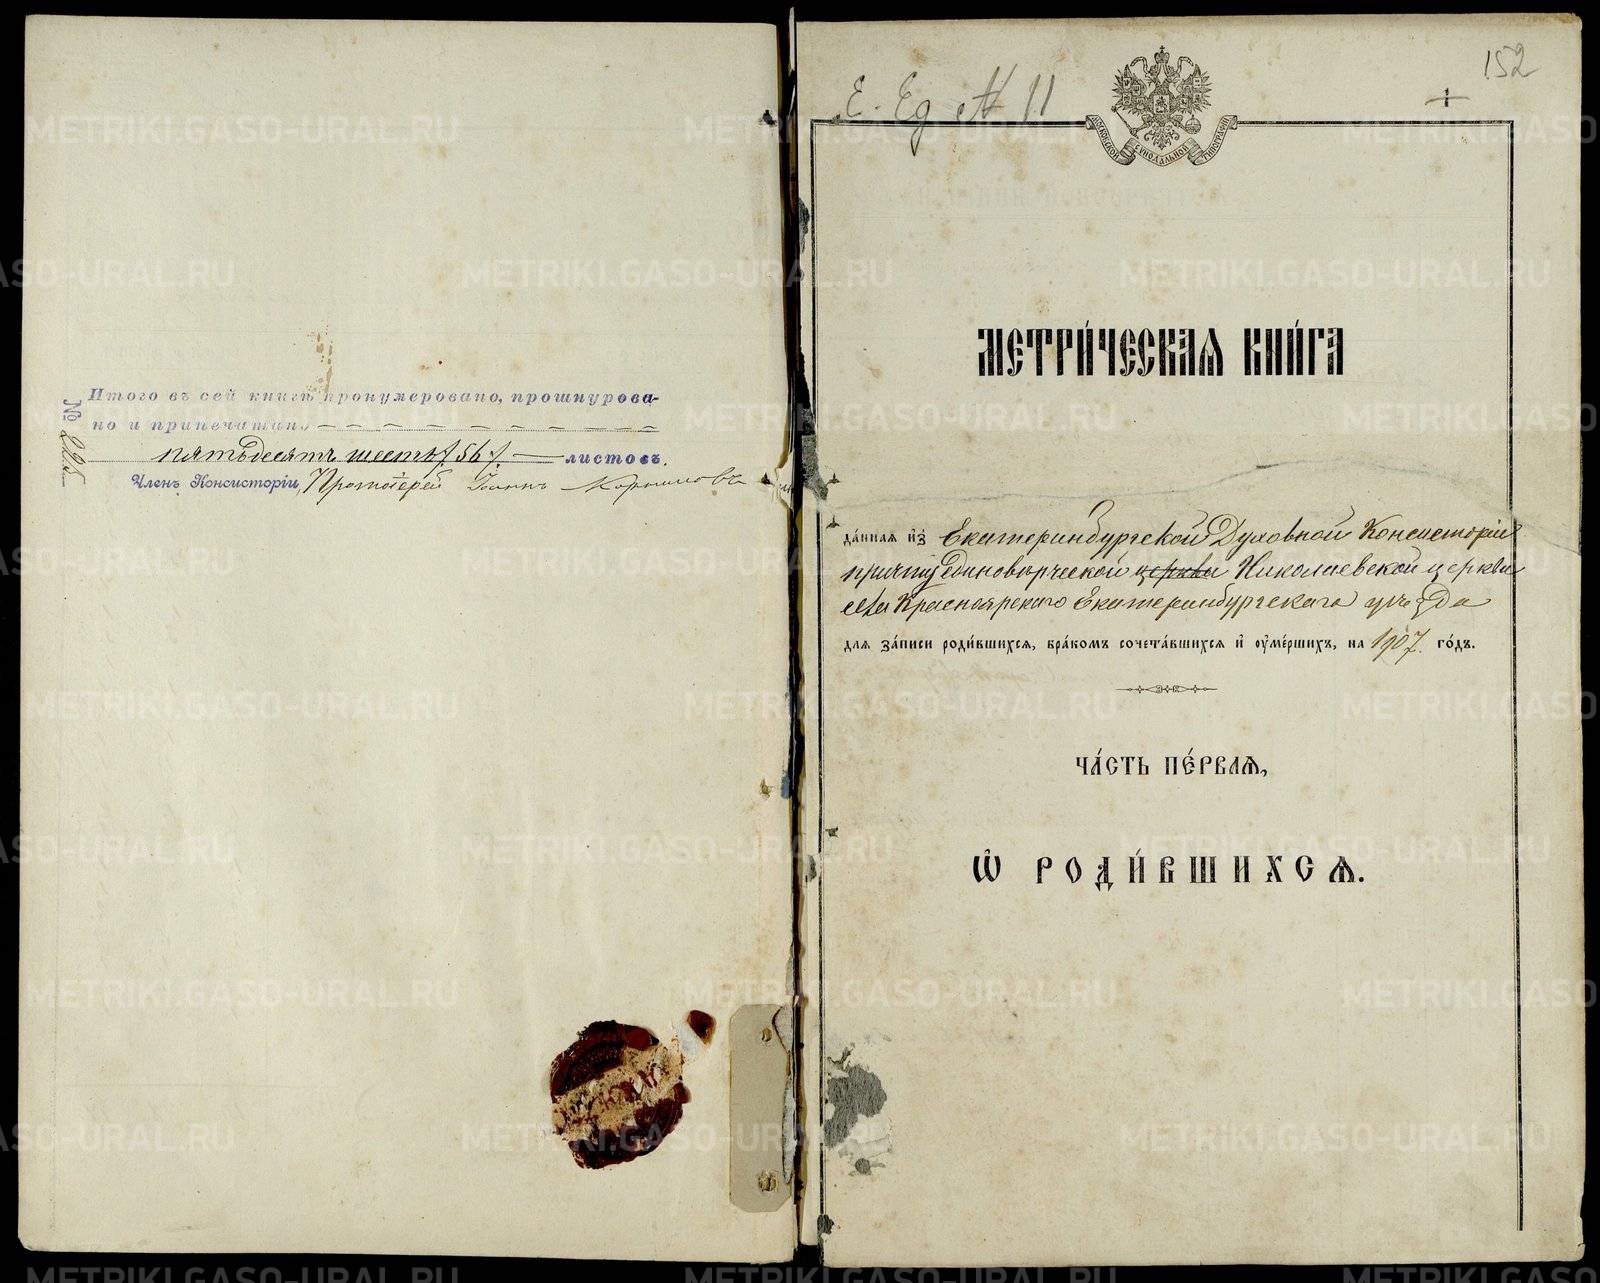 Итого въ сей книгѣ пронумеровано, прошнурова-
но и припечатано
пятьдесятъ шесть /56/ листовъ.
Членъ Консисторіи, Протоіерей Іоаннъ
№
Е. Ед № 11
152
1
МОСКОВСКОЙ СѴНОДАЛЬНОЙ ТИПОГРАФІИ
МЕТРИ́ЧЕСКАѦ КНИ́ГА
да́нная и҆з̾ Екатеринбургской Духовной Консисторіи
причту Единовѣрческой церкви Николаевской церкви
села Красноярскаго Екатеринбургскаго уѣзда
для за́писи роди́вшихся, бра́комъ сочета́вшихся и҆ ᲂу҆ме́ршихъ, на 1907 го́дъ.
ЧА́СТЬ ПЕ́РВАѦ,
Ѽ РОДИ́ВШИХСѦ.
METRIKI.GASO-URAL.RU